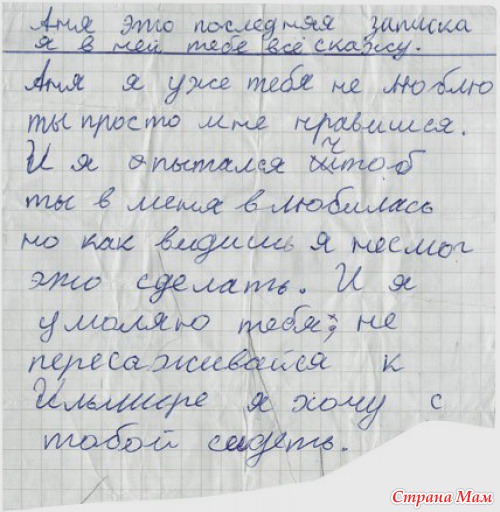 Аня это последняя записка
я в ней тебе всё скажу.
Аня я уже тебя не люблю
ты просто мне нравишся.
И я опытался чтоб
ты в меня влюбилась
но как видишь я несмог
это сделать. И я
умоляю тебя; не
пересаживайся к
Ильмире я хочу с
тобой сидеть.
Страна Мам